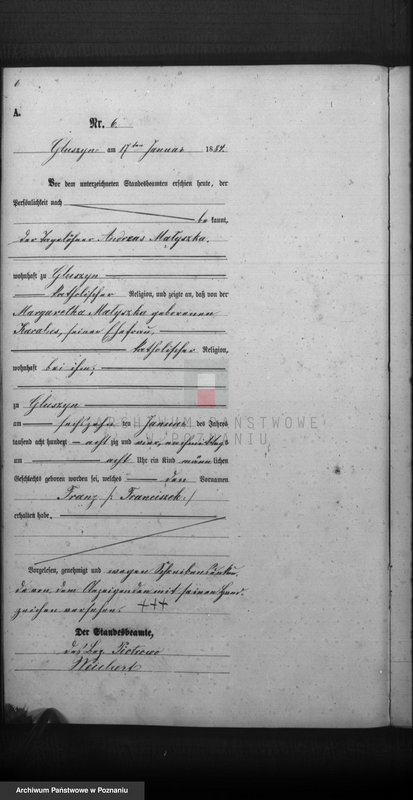 6
A.
Nr. 6.
Gluszyn am 17ten Januar 1884.
Vor dem unterzeichneten Standesbeamten erschien heute, der
Persönlichkeit nach
be kannt,
der Tagelöhner Andreas Małyszka,
wohnhaft zu Gluszyn
katholischer Religion, und zeigte an, daß von der
Margaretha Małyszka geborenen
seiner Ehefrau,
katholischer Religion,
wohnhaft bei ihm,
zu Gluszyn
am sechszehn ten Januar des Jahres
tausend acht hundert acht zig und vier, nachmittags
um acht Uhr ein Kind männ lichen
Geschlechts geboren worden sei, welches den Vornamen
Franz /: Franciszek :/
erhalten habe.
Vorgelesen, genehmigt und wegen Schreibens
von dem Anzeigenden mit seinen Hand-
zeichen versehen. +++
Der Standesbeamte,
des Bez. Piotrowo
ARCHIWUM PAŃSTWOWE
W POZNANIU
Archiwum Państwowe w Poznaniu